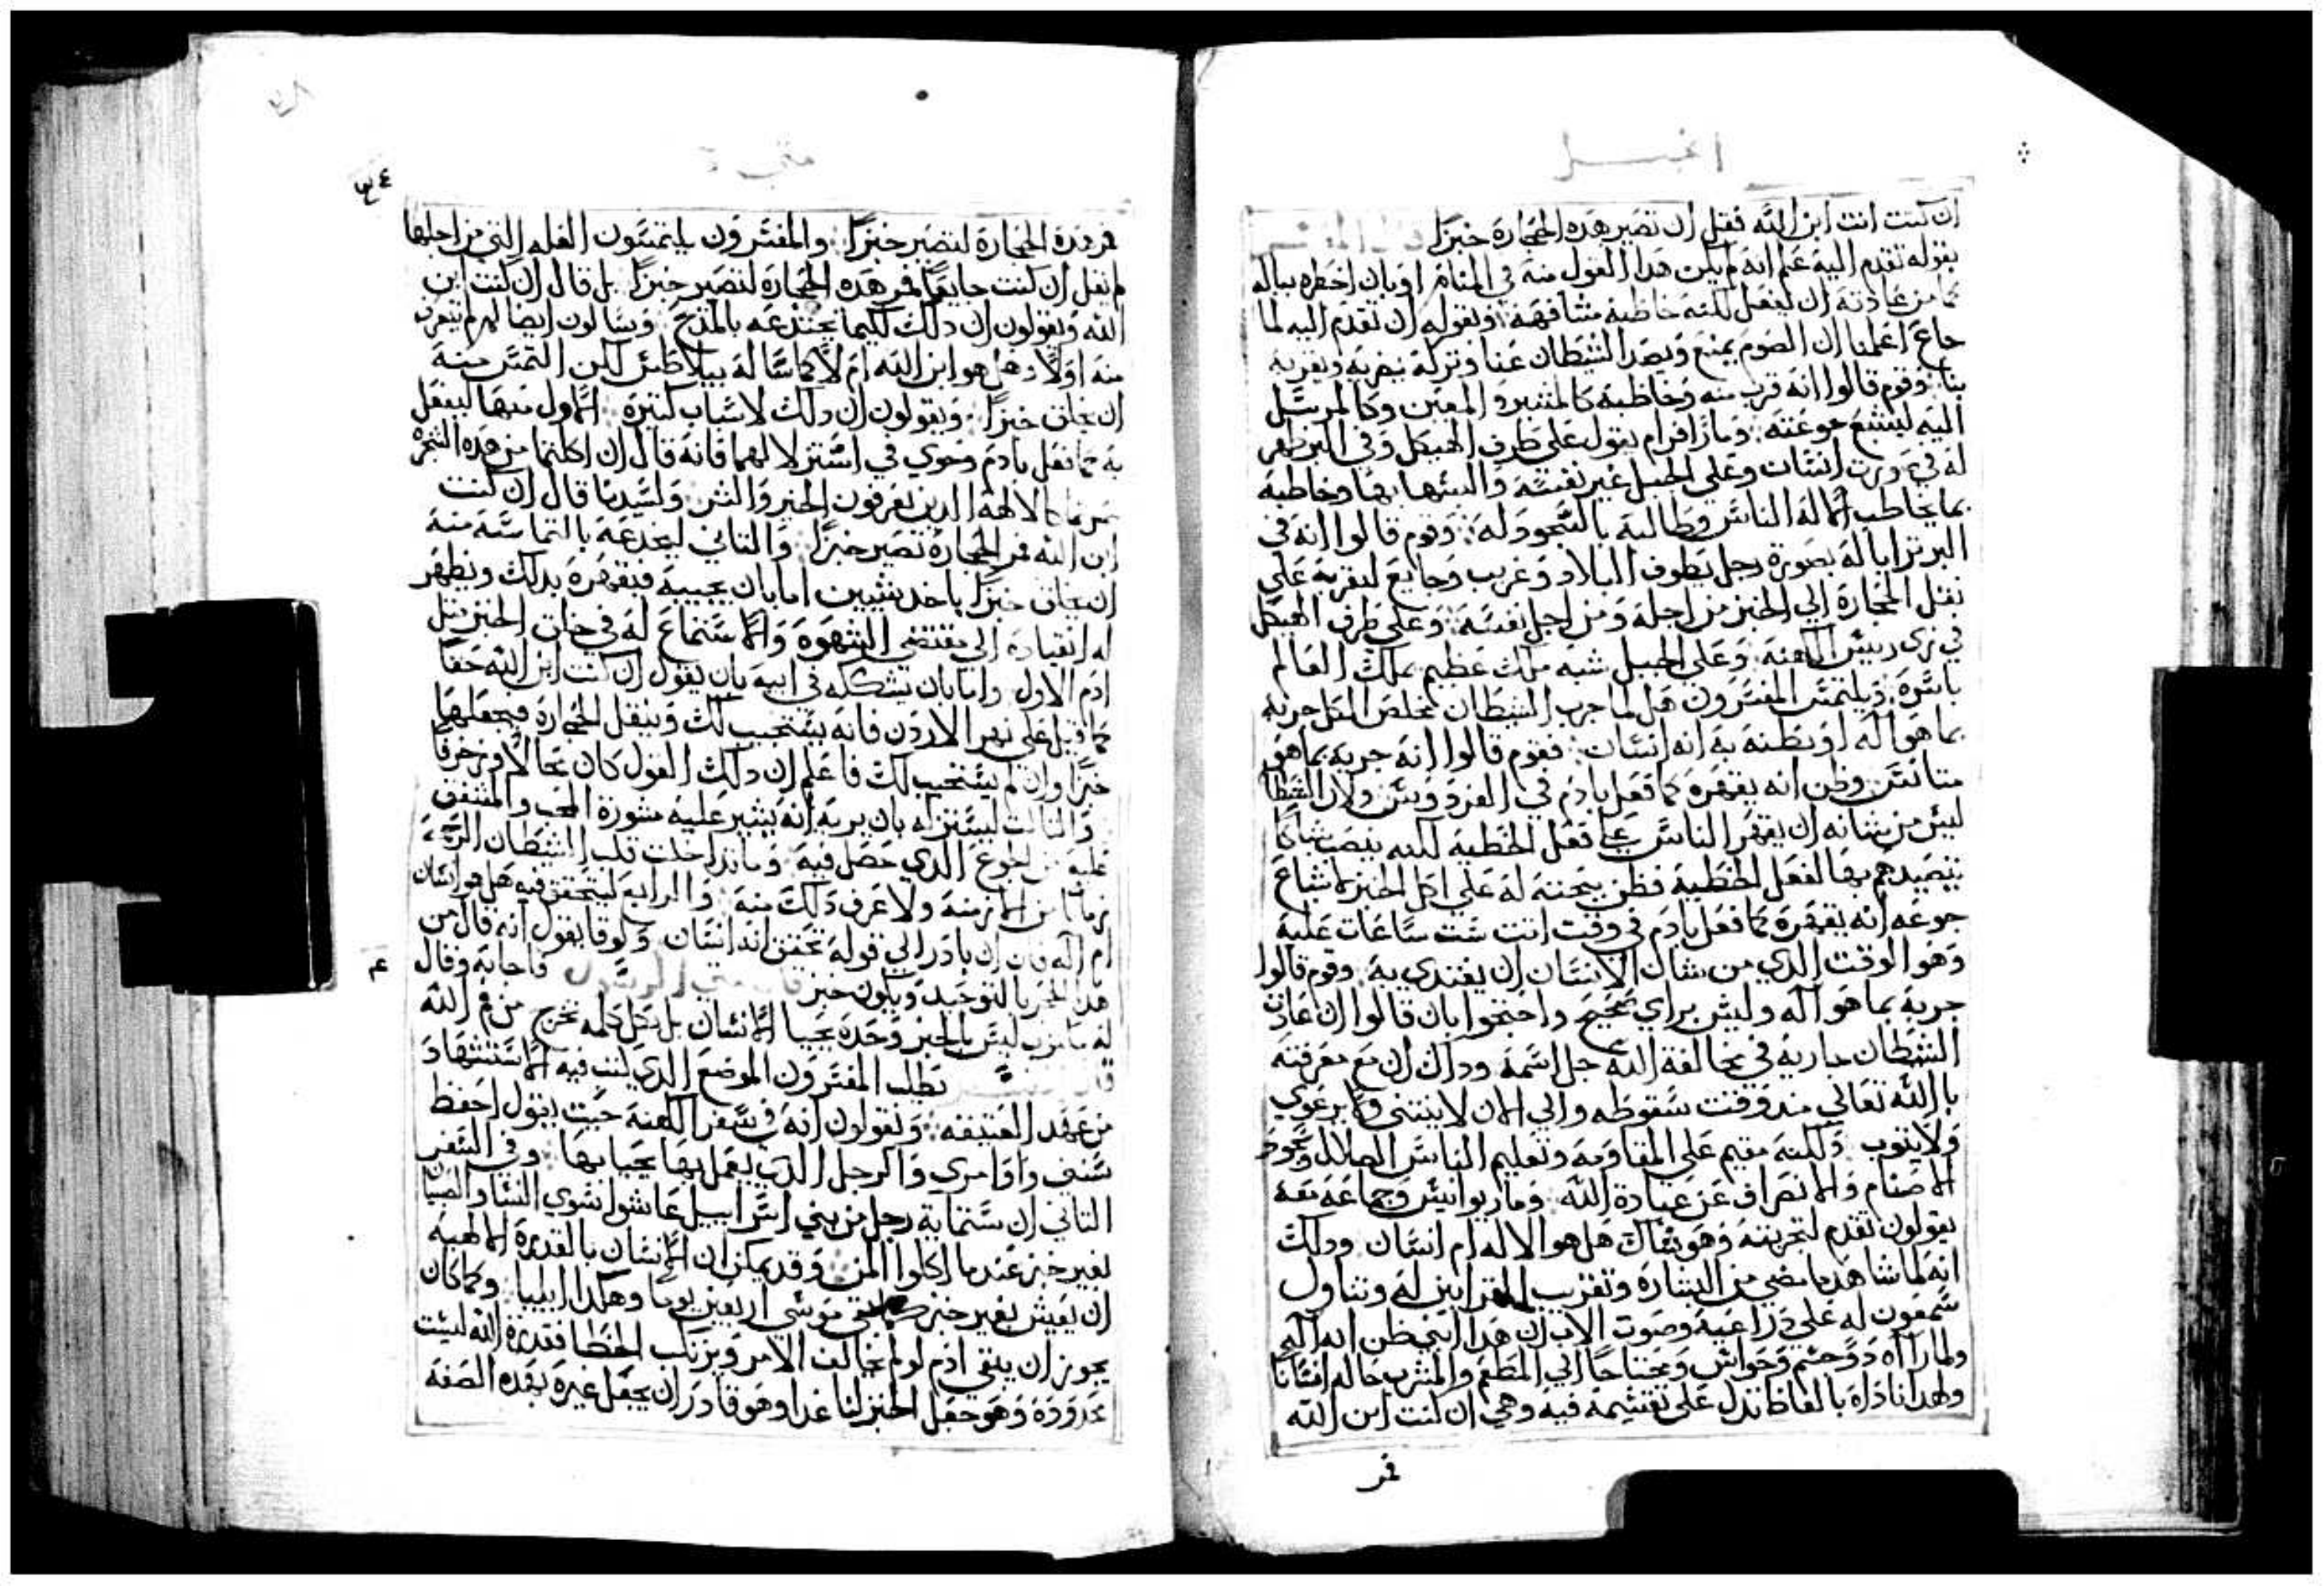 انجيل
ان كنت انت ابن الله فقل ان تصير هذه الحجارة خبزًا قال المفسر
بقوله تقدم اليه علم انه لم يكن هذا القول منه في المنام او بان اخطره بباله
كما من عادته ان يفعل لكنه خاطبه مشافهة وبقوله ان تقدم اليه لما
جاع اعلمنا ان الصوم يمنع ويصد الشيطان عنا وتركه يغريه ويقربه
بنا وقوم قالوا انه قرب منه وخاطبه كالمشير والمعين وكالمرسل
اليه ليشبع جوعته وماز افرام يقول على طرف الهيكل وفي البر ظهر
له في انسان وعلى الجبل غير نفسه والبسها بها وخاطبه
بما يخاطب اله الناس وطالبه بالسجود له وقوم قالوا انه في
البر ترايا له بصورة رجل يطوف البلاد وغريب وجايع ليقربه على
نقل الحجارة الى الخبز من اجله ومن اجل نفسه وعلى طرف الهيكل
في زي رييس الكهنة وعلى الجبل شبه ملك عظيم يملك العالم
باسره ويلتمس المفسرون هل لما جرب الشيطان مخلص الكل جربه
بما هو اله او بظنه به انه انسان فقوم قالوا انه جربه بما هو
متانس وظن انه يقهره كما فعل بادم في الفردوس ولان الشيطان
ليس من شانه ان يقهر الناس على فعل الخطية لكنه ينصب شباكا
يصيدهم بها لفعل الخطية فظن بمحنته له على اكل الخبز لاشباع
جوعه انه يقهره كما فعل بادم في وقت اتت ست ساعات عليه
وهو الوقت الذي من شان الانسان ان يغتدي به وقوم قالوا
جربه بما هو اله وليس براي صحيح واحتجوا بان قالوا ان عادة
الشيطان جارية في مخالفة الله جل اسمه وذاك ان مع معرفته
بالله تعالي منذ وقت سقوطه والي الان لا ينتني ولا يرعوي
ولا يتوب ولكنه مقيم على المقاومة وتعليم الناس الضلال وسجود
الاصنام والانصراف عن عبادة الله وماريوانيس وجماعة معه
يقولون تقدم لتجربته وهو شاك هل هو الاله ام انسان وذلك
انه لما شاهد ما مضى من البشارة وتقريب القرابين له وتناول
سمعون له على ذراعيه وصوت الاب ان هذا ابني ظن انه اله
ولما رااه ذو جسم وحواس ومحتاجا الي المطعم والمشرب خاله انسانا
ولهذا ناداه بالفاظ تدل على تقسيمه فيه وهي ان كنت ابن الله
فمر
متى
فمر هذه الحجارة لتصير خبزًا والمفسرون يلتمسون العله التي من اجلها
لم يقل ان كنت جايعًا فمر هذه الحجارة لتصير خبزًا بل قال ان كنت ابن
الله ويقولون ان ذلك لكيما يختدعه بالمدح ويسالون ايضا لم لم يتعرف
منه اولا هل هو ابن الله ام لا كما ساله بيلاطس لكن التمس منه
ان يخلق خبزًا ويقولون ان ذلك لاسباب كثيرة الاول منها ليفعل
به كما فعل بادم وحوي في استزلالهما فانه قال ان اكلتما من هذه الشجرة
صرتما كالالهة الذين يعرفون الخير والشر ولسيدنا قال ان كنت
ابن الله فمر الحجارة تصير خبزًا والثاني ليخدعه بالتماسه منه
ان يخلق خبزًا باحد شيين اما بان يجيبه فيقهره بذلك ويظهر
له انقياده الي مقتضي الشهوة والاستماع له في خلق الخبز مثل
ادم الاول واما بان يشككه في ابيه بان يقول ان كنت ابن الله حقا
كما قيل على نهر الاردن فانه يستجيب لك وينقل الحجارة فيجعلها
خبزًا وان لم يستجيب لك فاعلم ان ذلك القول كان محالا وزخرفا
والثالث ليستزله بان يريه انه يشير عليه مشورة المحب والمشفق
عليه من الجوع الذي حصل فيه وما تداخلت قلب الشيطان الرحمة
زمانا من الازمنة ولا عرف ذلك منه والرابع ليتحقق فيه هل هو انسان
ام اله فان بادر الي قوله تحقق انه انسان ولوقا يقول انه قال من
هذا الحجر بالتوحيد ويكون خبز قال متى الرسول فاجابه وقال
له مكتوب ليس بالخبز وحده يحيا الانسان بل بكل كلمه تخرج من فم الله
قال المفسر نطلب المفسرون الموضع الذي كتب فيه الاستشهاد
من عهد العتيقه ويقولون انه في سفر الكهنة حيث يقول احفظ
سنني واوامري والرجل الذي يعمل بها يحيا بها وفي السفر
الثاني ان ستماية رجل من بني اسراييل عاشوا سوي النسا والصبيان
بغير خبز عندما اكلوا المن وقد يمكن ان الانسان بالقدرة الالهيه
ان يعيش بغير خبز كما بقي موسى اربعين يوما وهكذا ايليا وكما كان
يجوز ان يبقي ادم لو لم يخالف الامر ويرتكب الخطا فقدرة الله ليست
محدودة وهو جعل الخبز لنا غذا وهو قادر ان يجعل غيره بهذه الصفة